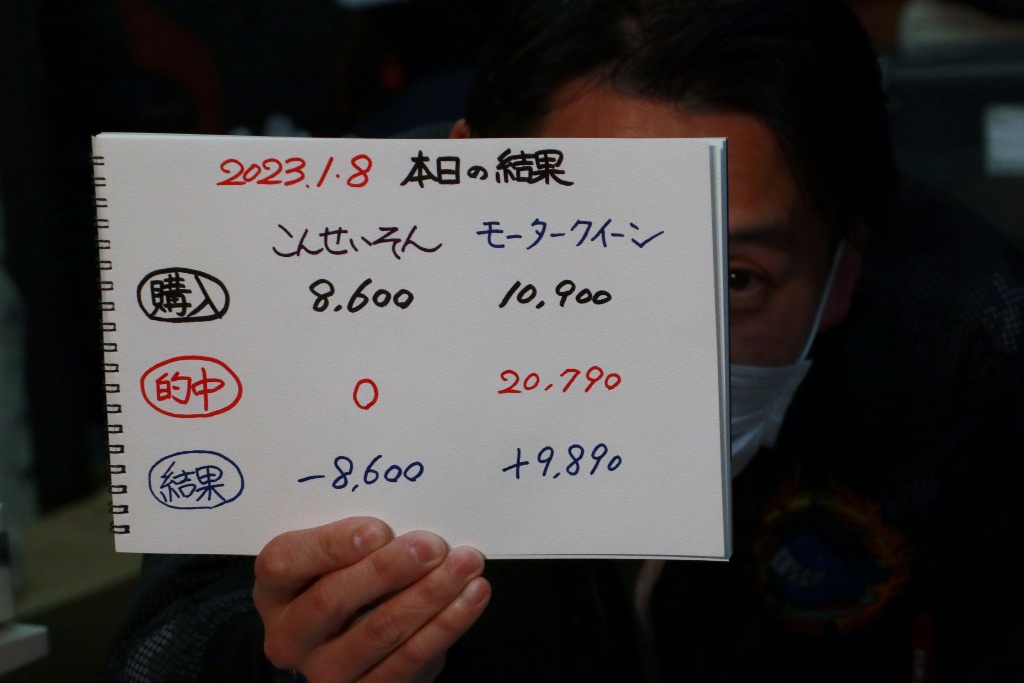 2023.1.8 本日の結果
こんせいそん モータークイーン
購入 8,600 10,900
的中 0 20,790
結果 -8,600 +9,890